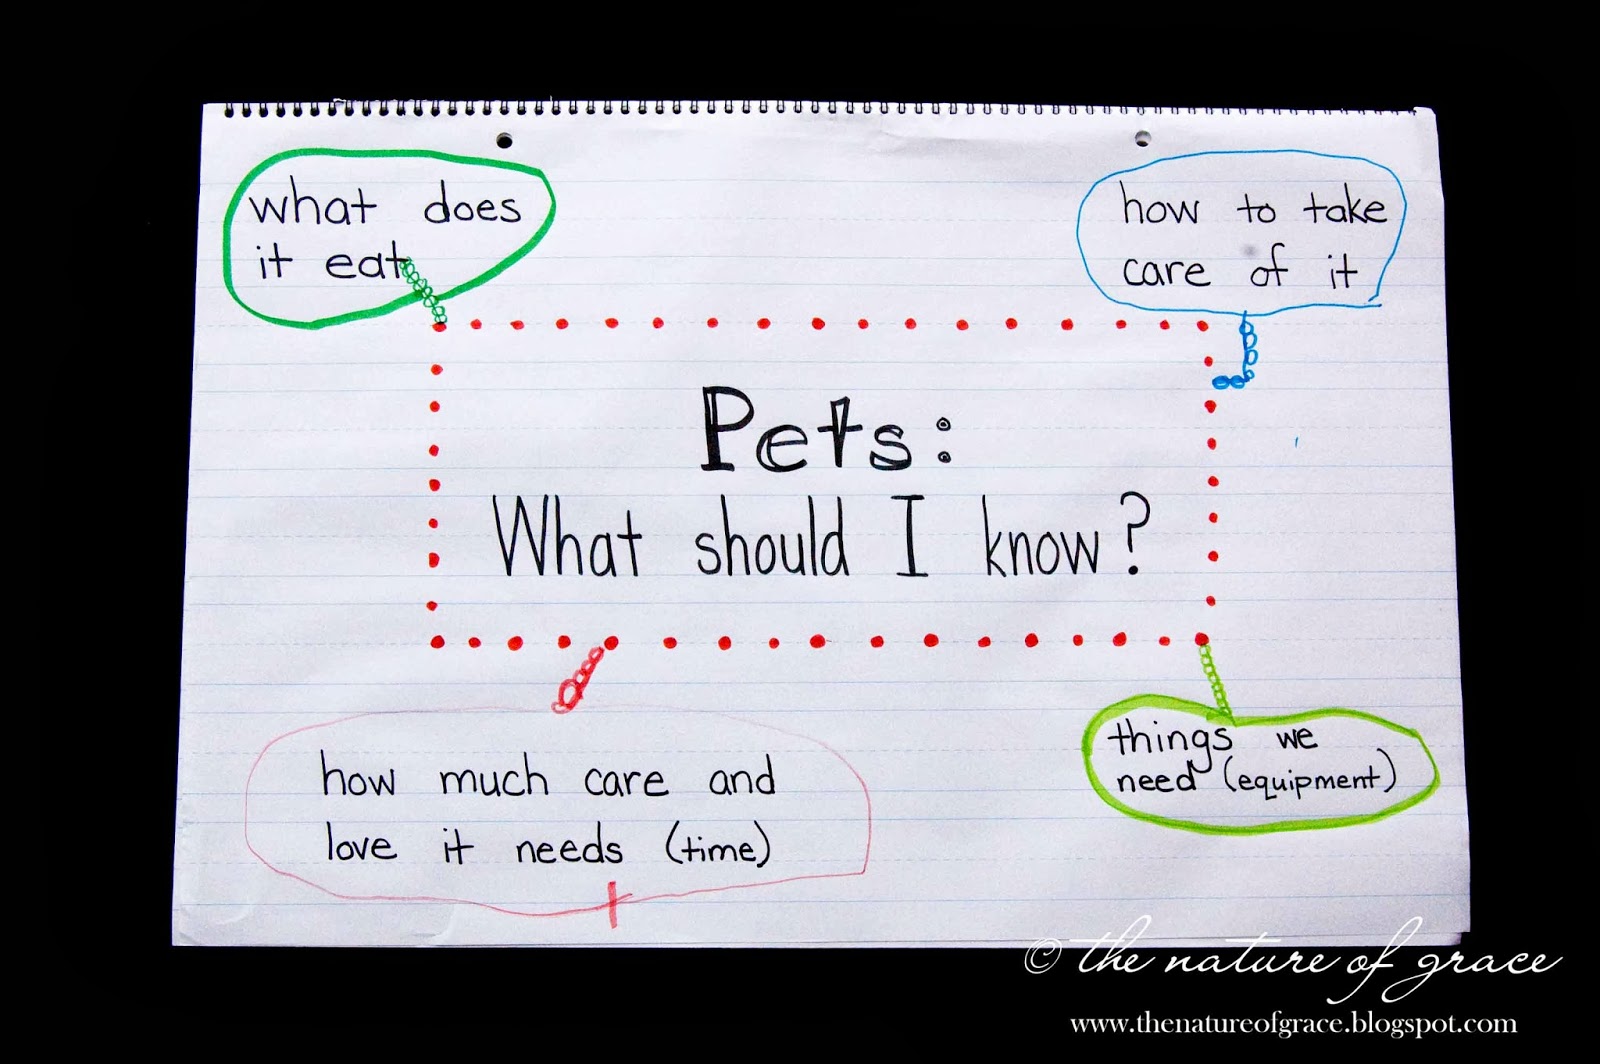 what does
it eat
how to take
care of it
Pets:
What should I know?
how much care and
love it needs (time)
things we
need (equipment)
© the nature of grace
www.thenatureofgrace.blogspot.com